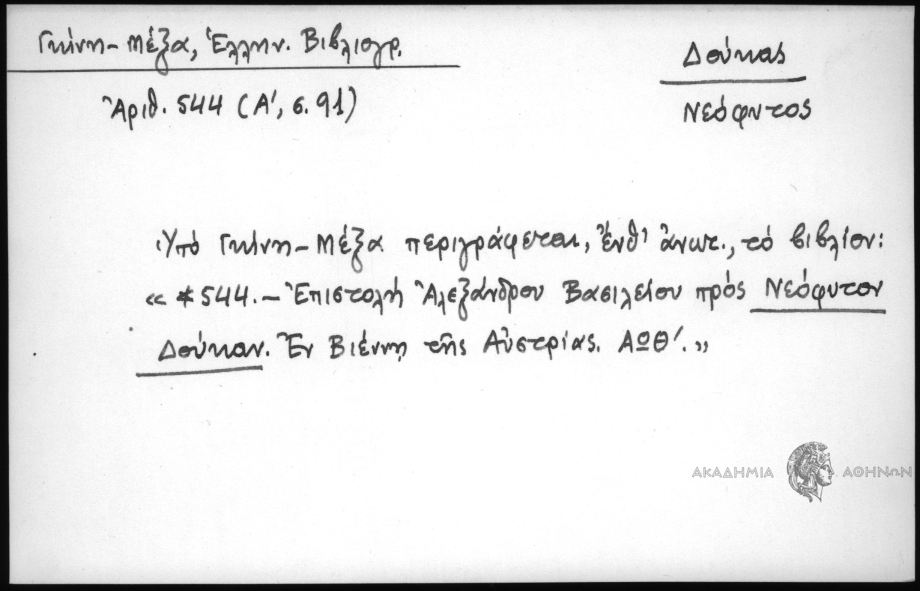 Γκίνη - Μέξα, Ἑλλην. Βιβλιογρ.
Δούκας
Νεόφυτος
Ἀριθ. 544 (Α', σ. 91)
Ὑπό Γκίνη - Μέξα περιγράφεται, ἔνθ' ἀνωτ., τό βιβλίον:
« *544. - Ἐπιστολή Ἀλεξάνδρου Βασιλείου πρός Νεόφυτον
Δούκαν. Ἐν Βιέννῃ τῆς Αὐστρίας. ΑΩΘ'. »
ΑΚΑΔΗΜΙΑ ΑΘΗΝΩΝ